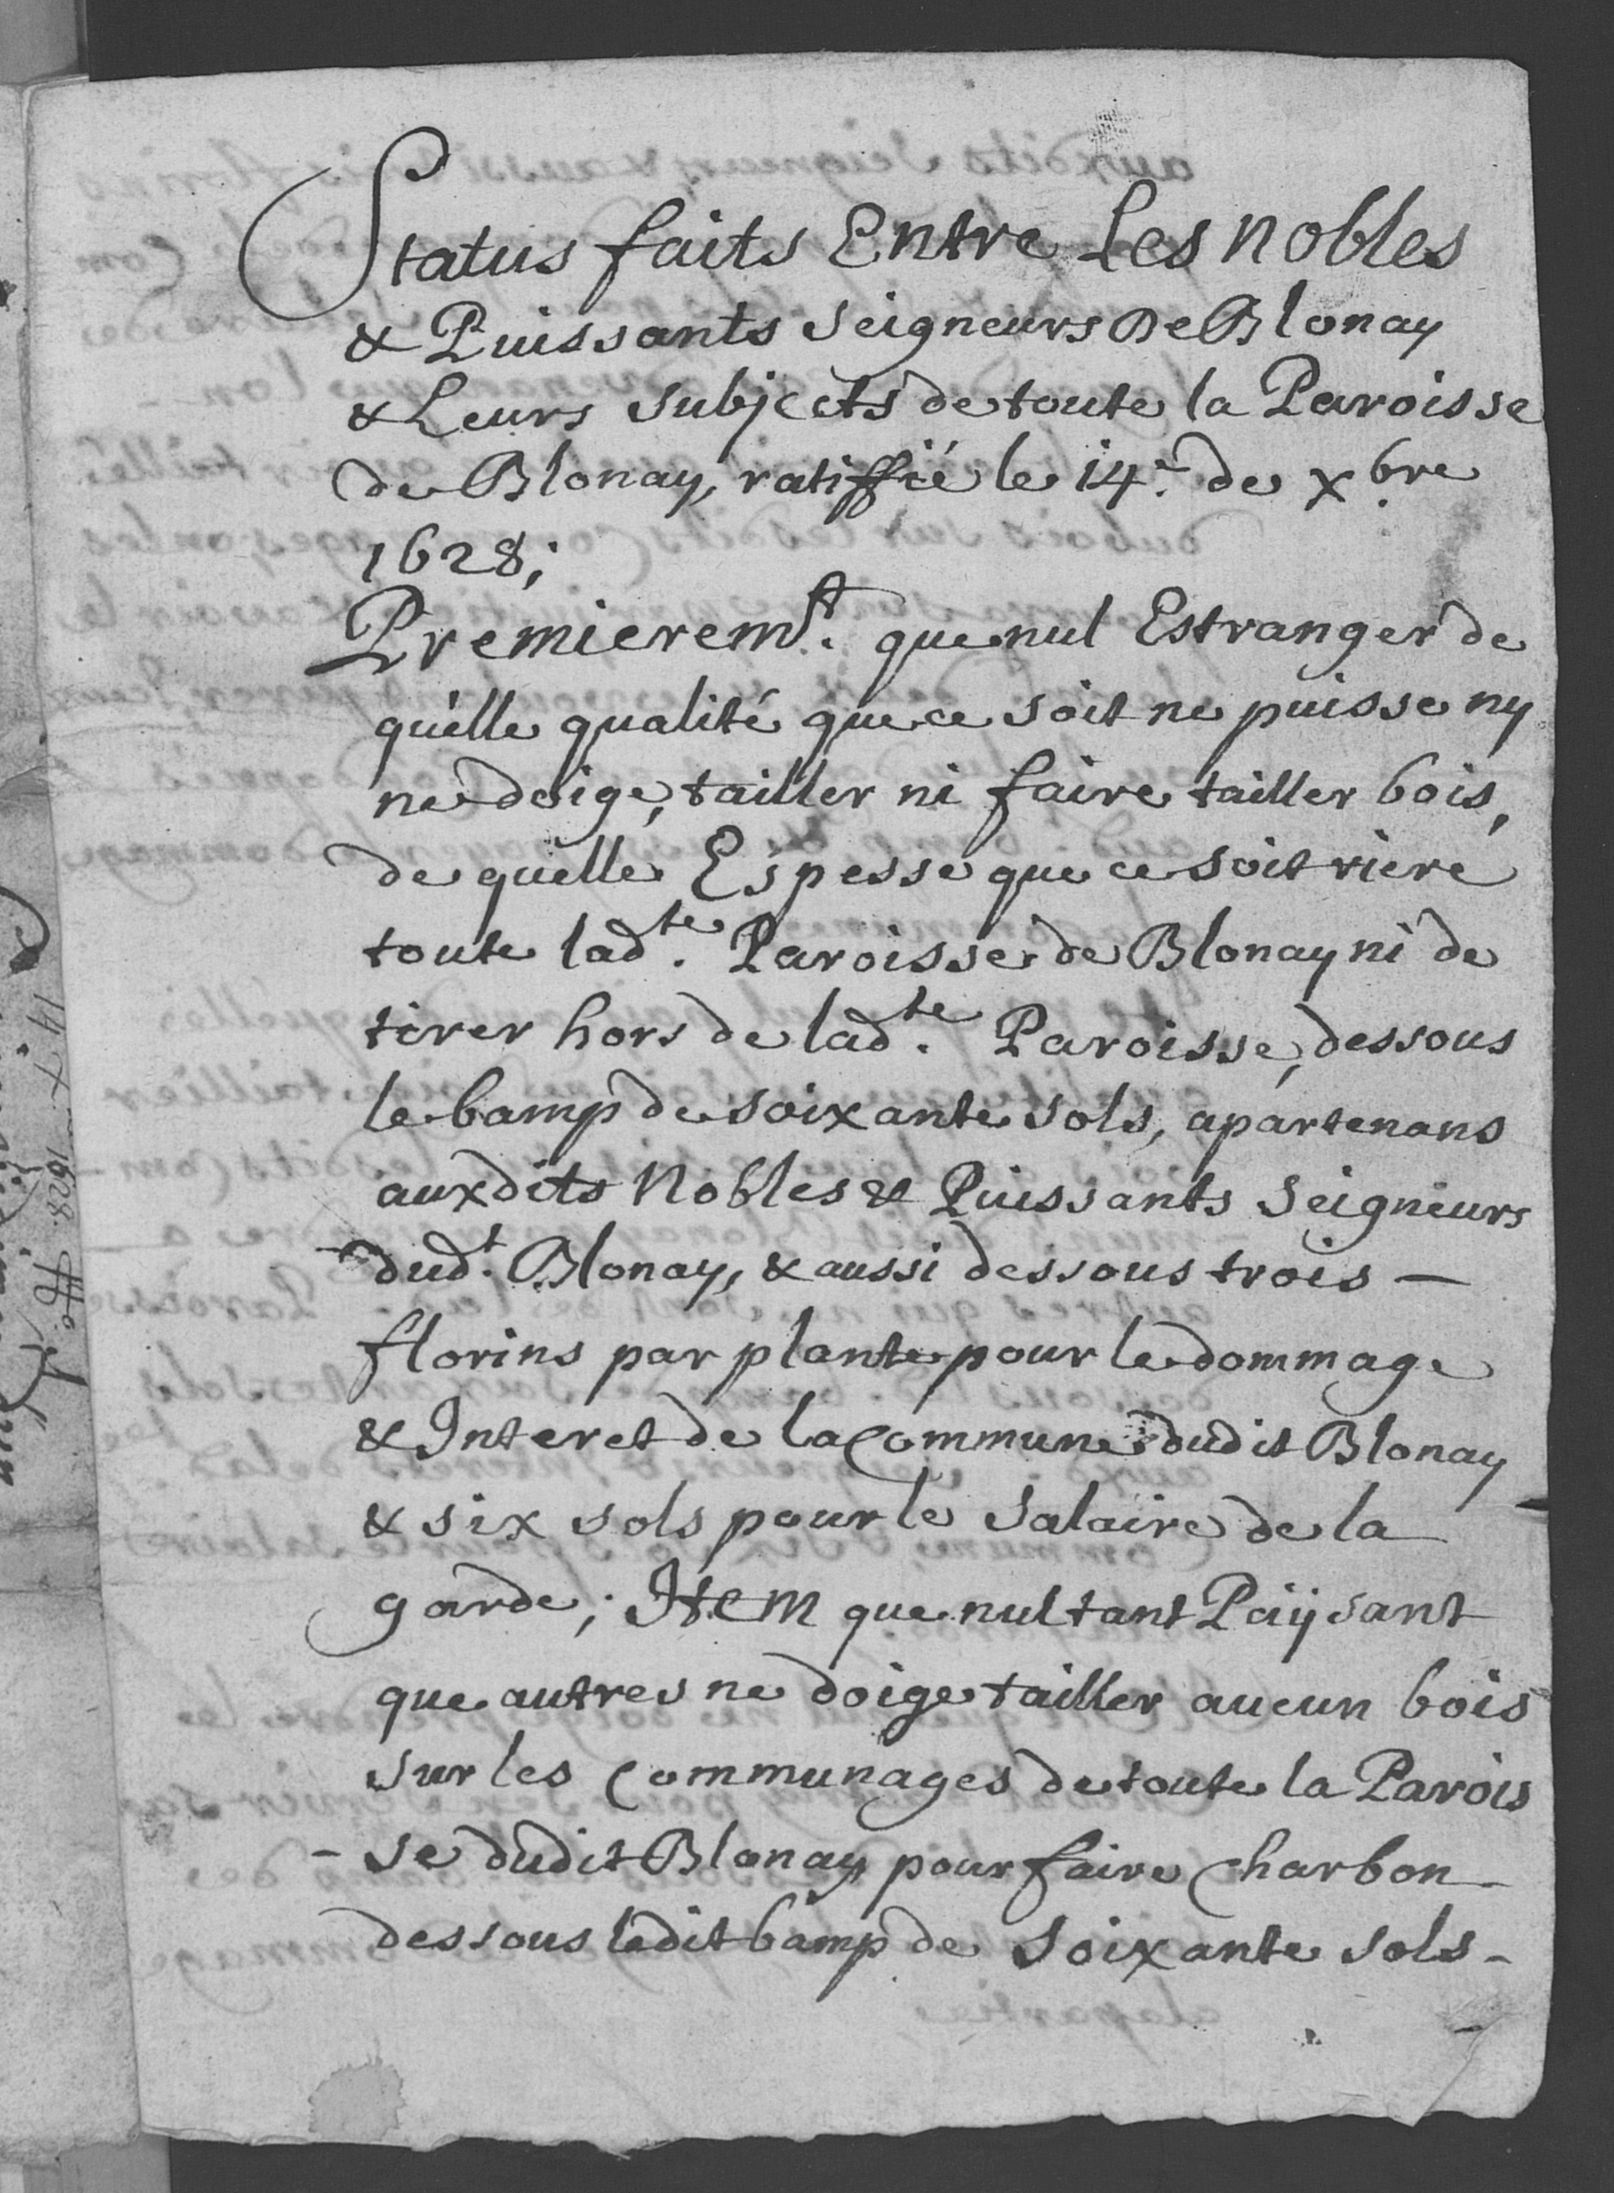 Status faits Entre Les Nobles
& Puissants Seigneurs De Blonay
& Leurs Subjects de toute la Paroisse
de Blonay, ratiffié le 14.e de xbre
1628;
Premierem.t que nul Estranger de
quelle qualité que ce soit ne puisse ny
ne doige, tailler ni faire tailler bois,
de quelle Espesse que ce soit riere
toute lad.te Paroisse de Blonay ni de
tirer hors de lad.te Paroisse, dessous
le bamp de soixante sols, apartenans
auxdits Nobles & Puissants Seigneurs
dud.t Blonay, & aussi dessous trois —
florins par plante pour le dommage
& Interet de la Commune dudit Blonay
& six sols pour le Salaire de la
garde; Item que nul tant Païsant
que autres ne doige tailler aucun bois
Sur les Communages de toute la Parois
- se dudit Blonay pour faire Charbon
dessous ledit bamp de Soixante sols -
14 x 1628.